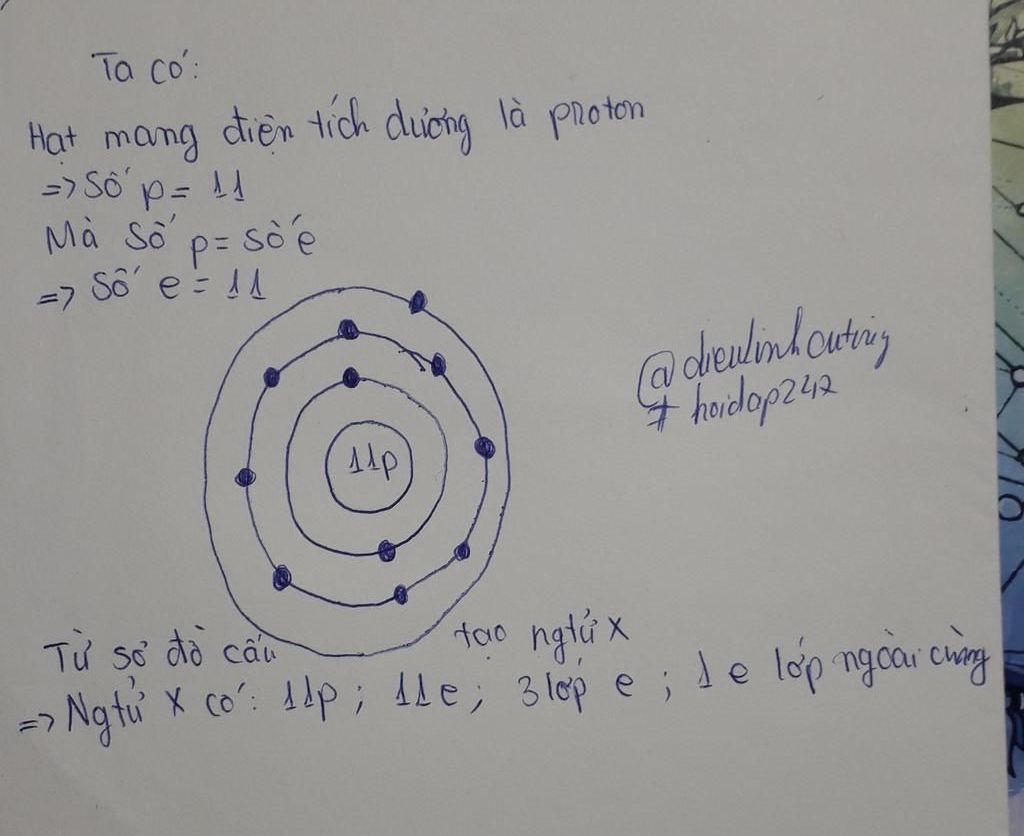 Ta có:
Hạt mang điện tích dương là proton
=> Số p = 11
Mà Số p = số e
=> Số e = 11
11p
@dieulinhcutiny
# hoidap247
Từ sơ đồ cấu tạo ngtử X
=> Ngtử X có: 11p; 11e; 3 lớp e; 1 e lớp ngoài cùng